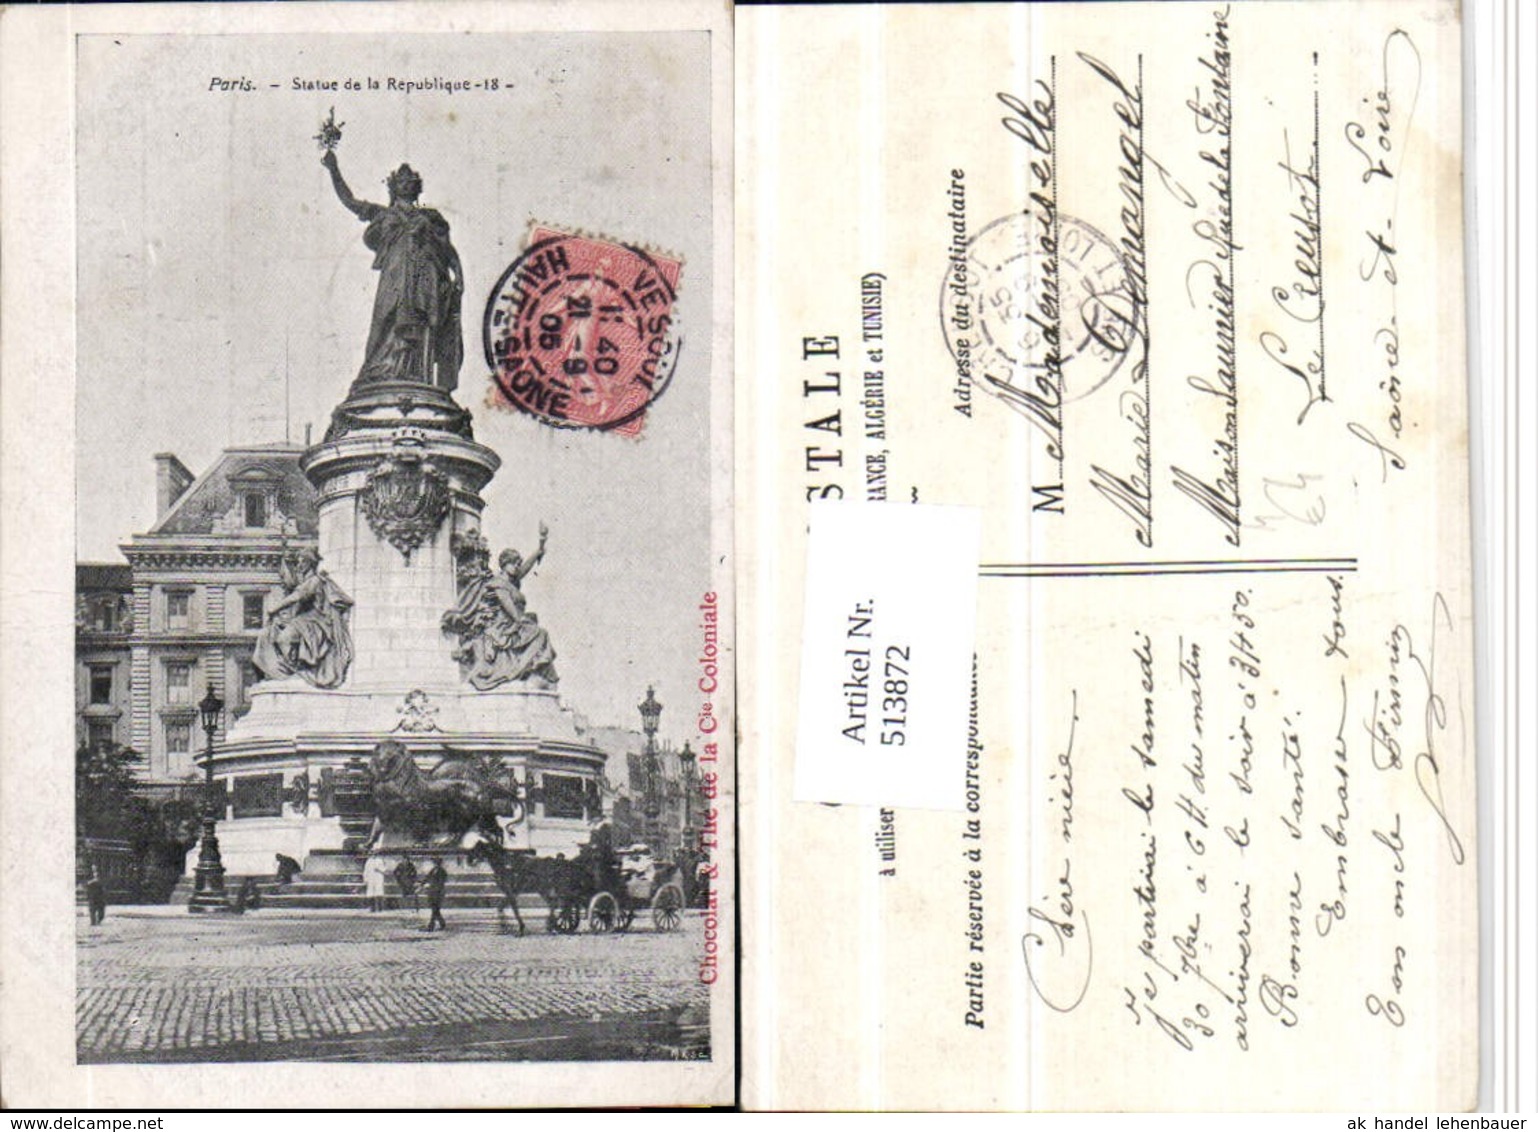 Paris. - Statue de la République -18-
VESOUL
11 40
21 -9
05
HAUTE-SAONE
Chocolat & Thé de la Cie Coloniale
STALE
RANCE, ALGÉRIE et TUNISIE)
à utiliser
Artikel Nr.
513872
Adresse du destinataire
M Mademoiselle
Marie Demangel
Maison Saunier Rue de la Fontaine
Le Creusot
Saône-et-Loire
Partie réservée à la correspondance
Chère nièce
Je partirai le samedi
30 7bre à 6 H. du matin
arriverai le soir à 3h50.
Bonne santé.
Embrasser vous.
Ton oncle Firmin
ak handel lehenbauer